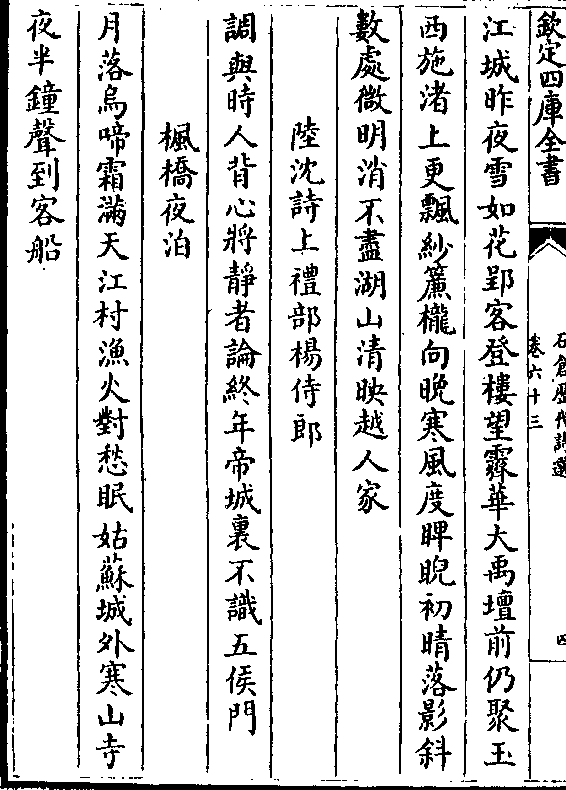 欽定四庫全書
石倉歷代詩選
卷六十三
四
江城昨夜雪如花郢客登樓望霽華大禹壇前仍聚玉
西施渚上更飄紗簾櫳向晚寒風度睥睨初晴落影斜
數處微明消不盡湖山清映越人家
陸沈詩上禮部楊侍郎
調與時人背心將靜者論終年帝城裏不識五侯門
楓橋夜泊
月落烏啼霜滿天江村漁火對愁眠姑蘇城外寒山寺
夜半鐘聲到客船